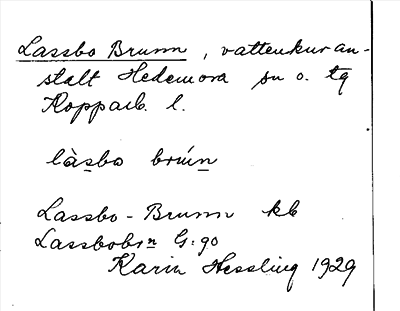 Lassbo Brunn, vattenkuran-
stalt Hedemora sn o. tg
Kopparb. l.
làsbo brún
Lassbo-Brunn kb
Lassbobrn G:90
Karin Hessling 1929